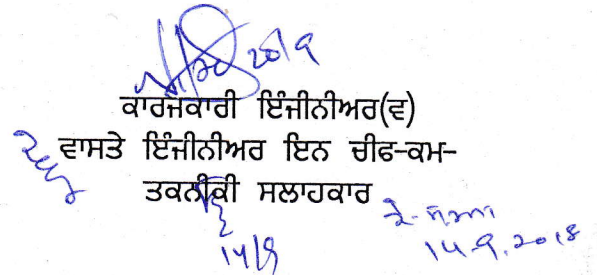 20/9
ਕਾਰਜਕਾਰੀ ਇੰਜੀਨੀਅਰ(ਵ)
ਵਾਸਤੇ ਇੰਜੀਨੀਅਰ ਇਨ ਚੀਫ-ਕਮ-
ਤਕਨੀਕੀ ਸਲਾਹਕਾਰ
14/9
14.9.2018